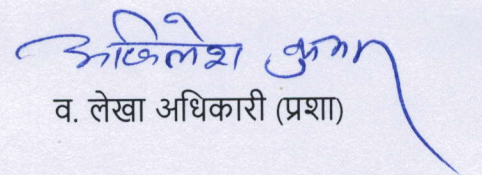 अखिलेश कुमार
व. लेखा अधिकारी (प्रशा)